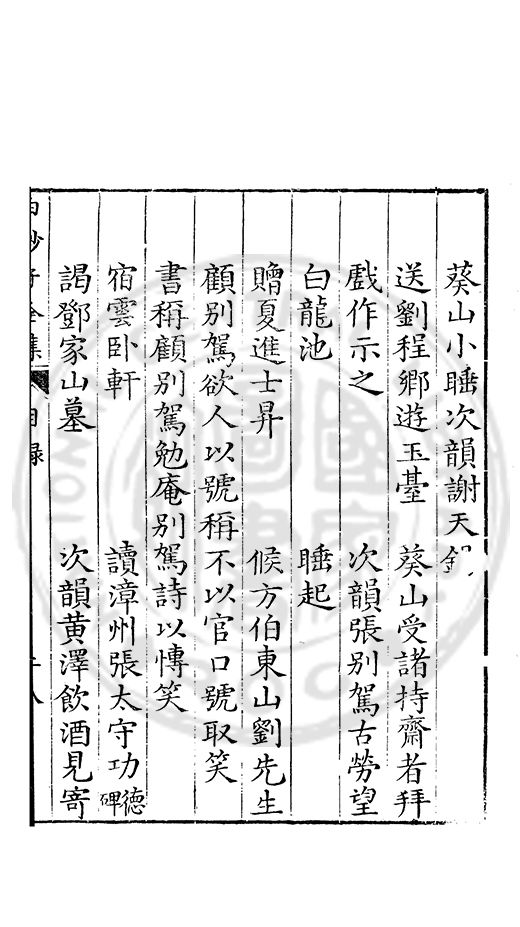 葵山小睡次韻謝天
送劉程鄉遊玉臺　葵山受諸持齋者拜
戲作示之　次韻張别駕古勞望
白龍池　睡起
贈夏進士昇　候方伯東山劉先生
顧别駕欲人以號稱不以官口號取笑
書稱顧别駕勉庵别駕詩以博笑
宿雲卧軒　讀漳州張太守功德碑
謁鄧家山墓　次韻黄澤飲酒見寄
白沙子全集　目録